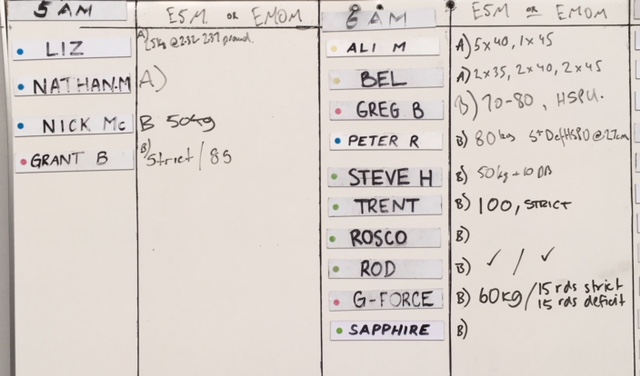 5 AM ESM OR EMOM
LIZ A)
NATHAN.M A)
NICK Mc B 50kg
GRANT B B) Strict / 85
6 AM ESM OR EMOM
ALI M A) 5x40, 1x45
BEL A) 2x35, 2x40, 2x45
GREG B B) 70-80, HSPU.
PETER R B) 80kgs St Def HSPU @ 27cm
STEVE H B) 50kg + 10 DB
TRENT B) 100, STRICT
ROSCO B)
ROD B) ✓ / ✓
G-FORCE B) 60kg / 15 rds strict
15 rds deficit
SAPPHIRE B)